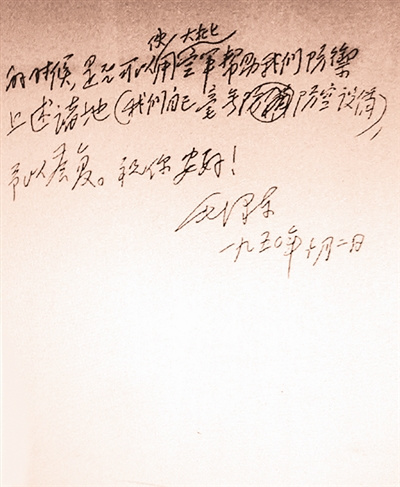 的时候,是否可以使用大批空军帮助我们防禦
上述诸地(我们自己毫无防空设备),
予以答复。祝你安好!
毛泽东
一九五〇年十月二日